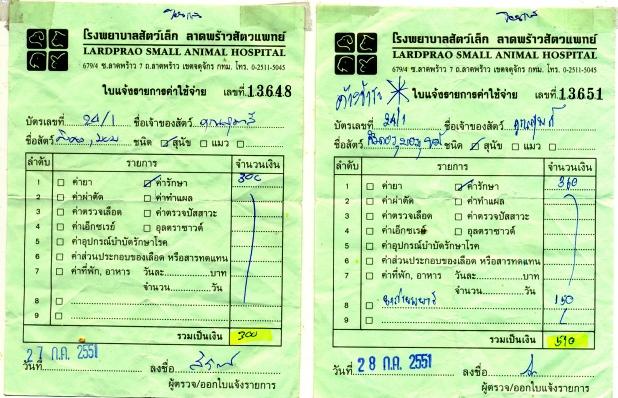 โรงพยาบาลสัตว์เล็ก ลาดพร้าวสัตวแพทย์
LARDPRAO SMALL ANIMAL HOSPITAL
679/4 ซ.ลาดพร้าว 7 ถ.ลาดพร้าว เขตจตุจักร กทม. โทร. 0-2511-5045
ใบแจ้งรายการค่าใช้จ่าย เลขที่ 13648
บัตรเลขที่ 24/1 ชื่อเจ้าของสัตว์
ชื่อสัตว์ ชนิด สุนัข แมว
ลำดับ รายการ จำนวนเงิน
1 ค่ายา ค่ารักษา 300
2 ค่าผ่าตัด ค่าทำแผล
3 ค่าตรวจเลือด ค่าตรวจปัสสาวะ
4 ค่าเอ็กซเรย์ อุลตราซาวด์
5 ค่าอุปกรณ์บำบัดรักษาโรค
6 ค่าส่วนประกอบของเลือด หรือสารทดแทน
7 ค่าที่พัก, อาหาร วันละ บาท
จำนวน วัน
8
9
รวมเป็นเงิน 300
27 ก.ค. 2551
วันที่ ลงชื่อ
ผู้ตรวจ/ออกใบแจ้งรายการ
โรงพยาบาลสัตว์เล็ก ลาดพร้าวสัตวแพทย์
LARDPRAO SMALL ANIMAL HOSPITAL
679/4 ซ.ลาดพร้าว 7 ถ.ลาดพร้าว เขตจตุจักร กทม. โทร. 0-2511-5045
ใบแจ้งรายการค่าใช้จ่าย เลขที่ 13651
บัตรเลขที่ 24/1 ชื่อเจ้าของสัตว์
ชื่อสัตว์ ชนิด สุนัข แมว
ลำดับ รายการ จำนวนเงิน
1 ค่ายา ค่ารักษา 360
2 ค่าผ่าตัด ค่าทำแผล
3 ค่าตรวจเลือด ค่าตรวจปัสสาวะ
4 ค่าเอ็กซเรย์ อุลตราซาวด์
5 ค่าอุปกรณ์บำบัดรักษาโรค
6 ค่าส่วนประกอบของเลือด หรือสารทดแทน
7 ค่าที่พัก, อาหาร วันละ บาท
จำนวน วัน
8 150
9
รวมเป็นเงิน 510
วันที่ 28 ก.ค. 2551 ลงชื่อ
ผู้ตรวจ/ออกใบแจ้งรายการ